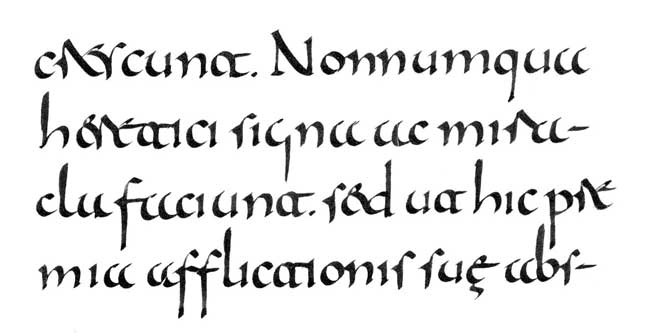 crescunt. Nonnumqua
heretici signa ac mira-
cula faciunt. sed ut hic pre
mia afflictionis suę abs-